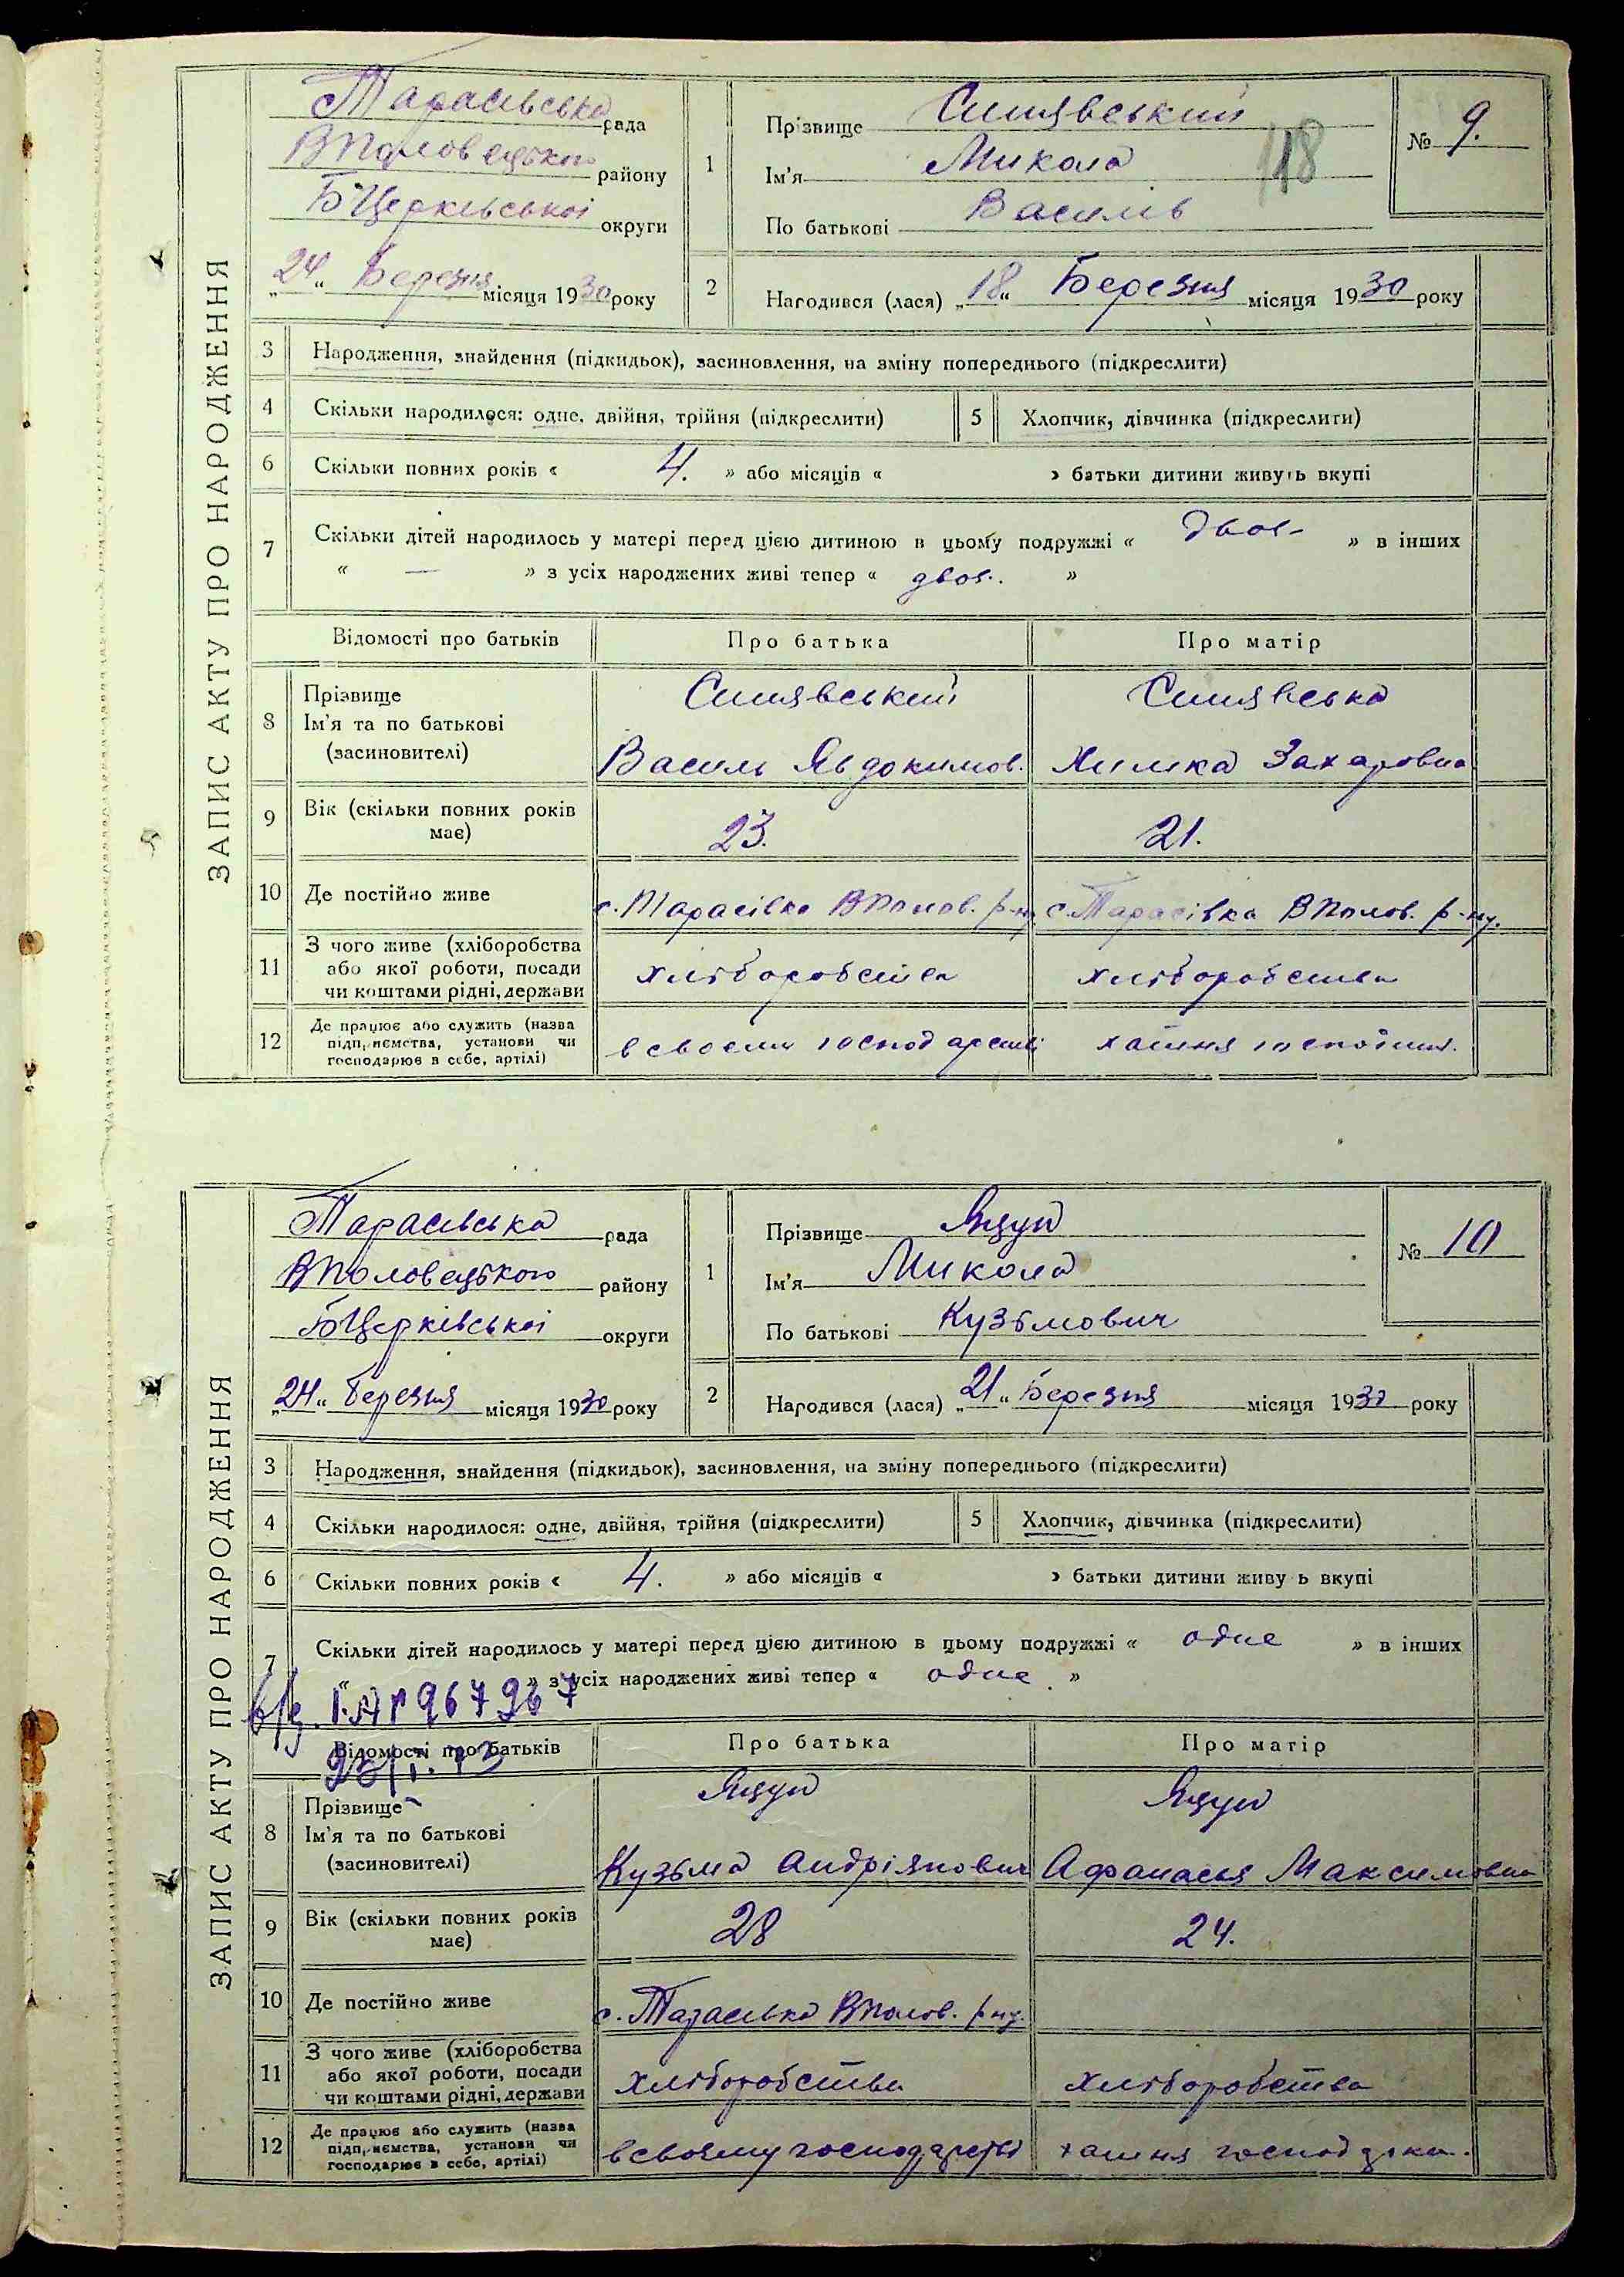 ЗАПИС АКТУ ПРО НАРОДЖЕННЯ
Тарасівська рада
ВПоловецького району
БЦерківської округи
„24“ Березня місяця 1930 року
1
Прізвище Синявський
Ім'я Микола
По батькові Василів
118
№ 9.
2
Народився (лася) „18“ Березня місяця 1930 року
3 Народження, знайдення (підкидьок), засиновлення, на зміну попереднього (підкреслити)
4 Скільки народилося: одне, двійня, трійня (підкреслити) 5 Хлопчик, дівчинка (підкреслити)
6 Скільки повних років « 4. » або місяців « » батьки дитини живуть вкупі
7 Скільки дітей народилось у матері перед цією дитиною в цьому подружжі « двоє » в інших
« — » з усіх народжених живі тепер « двоє. »
Відомості про батьків Про батька Про матір
8 Прізвище Синявський Синявська
Ім'я та по батькові
(засиновителі) Василь Явдокимов. Химка Захаровна
9 Вік (скільки повних років
має) 23. 21.
10 Де постійно живе с. Тарасівка ВПолов. р-ну. с. Тарасівка ВПолов. р-ну.
11 З чого живе (хліборобства
або якої роботи, посади хліборобства хліборобства
чи коштами рідні, держави
12 Де працює або служить (назва
підприємства, установи чи в своєму господарстві хатня
господарює в себе, артілі)
ЗАПИС АКТУ ПРО НАРОДЖЕННЯ
Тарасівська рада
ВПоловецького району
БЦерківської округи
„24“ Березня місяця 1930 року
1
Прізвище Яцун
Ім'я Микола
По батькові Кузьмович
№ 10
2
Народився (лася) „21“ Березня місяця 1930 року
3 Народження, знайдення (підкидьок), засиновлення, на зміну попереднього (підкреслити)
4 Скільки народилося: одне, двійня, трійня (підкреслити) 5 Хлопчик, дівчинка (підкреслити)
6 Скільки повних років « 4. » або місяців « » батьки дитини живу ь вкупі
7 Скільки дітей народилось у матері перед цією дитиною в цьому подружжі « одне » в інших
« » з усіх народжених живі тепер « одне »
967967
Відомості про батьків Про батька Про матір
8 Прізвище Яцун Яцун
Ім'я та по батькові
(засиновителі) Кузьма Андріянович Афанасія Максимовна
9 Вік (скільки повних років
має) 28 24.
10 Де постійно живе с. Тарасівка ВПолов. р-ну.
11 З чого живе (хліборобства
або якої роботи, посади хліборобства хліборобства
чи коштами рідні, держави
12 Де працює або служить (назва
підприємства, установи чи в своєму господарстві хатня
господарює в себе, артілі)